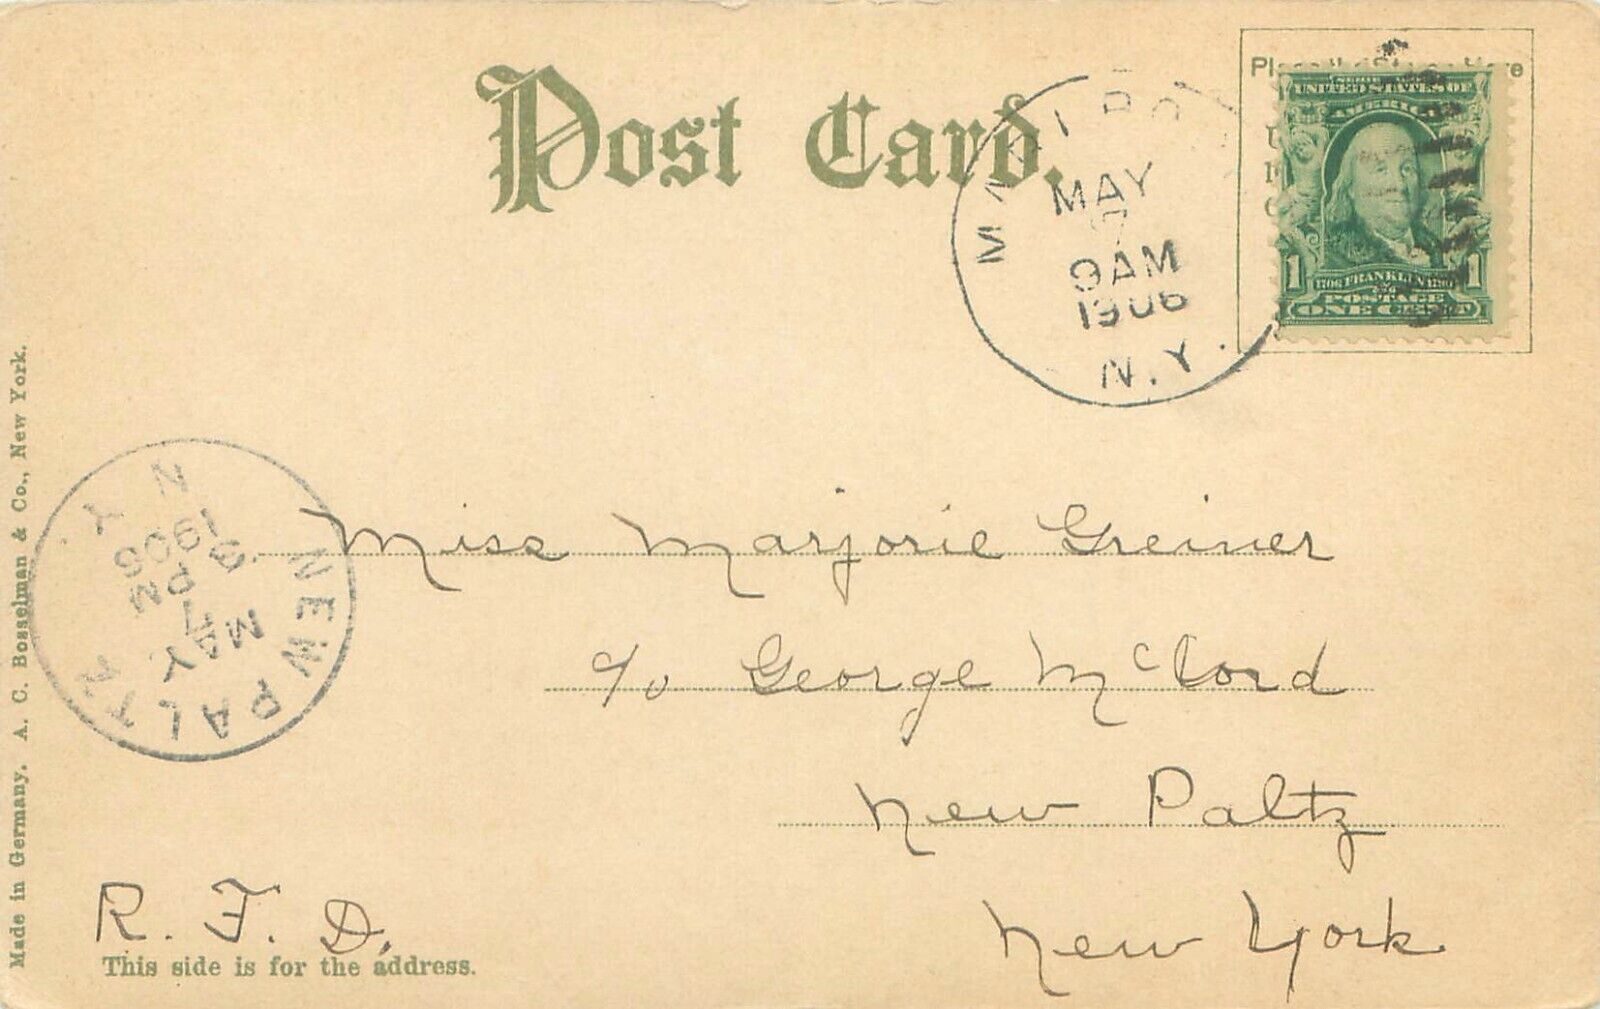 Post Card.
Place the Stamp Here
SERIES 1902
UNITED STATES OF
AMERICA
1 1
FRANKLIN
POSTAGE
ONE CENT
MAY
7
9 AM
1906
N.Y.
NEW PALTZ
N.Y.
MAY
7
PM
1906
Miss Marjorie Greiner
c/o George McCord
New Paltz
New York
R. F. D.
This side is for the address.
Made in Germany. A. C. Bosselman & Co., New York.